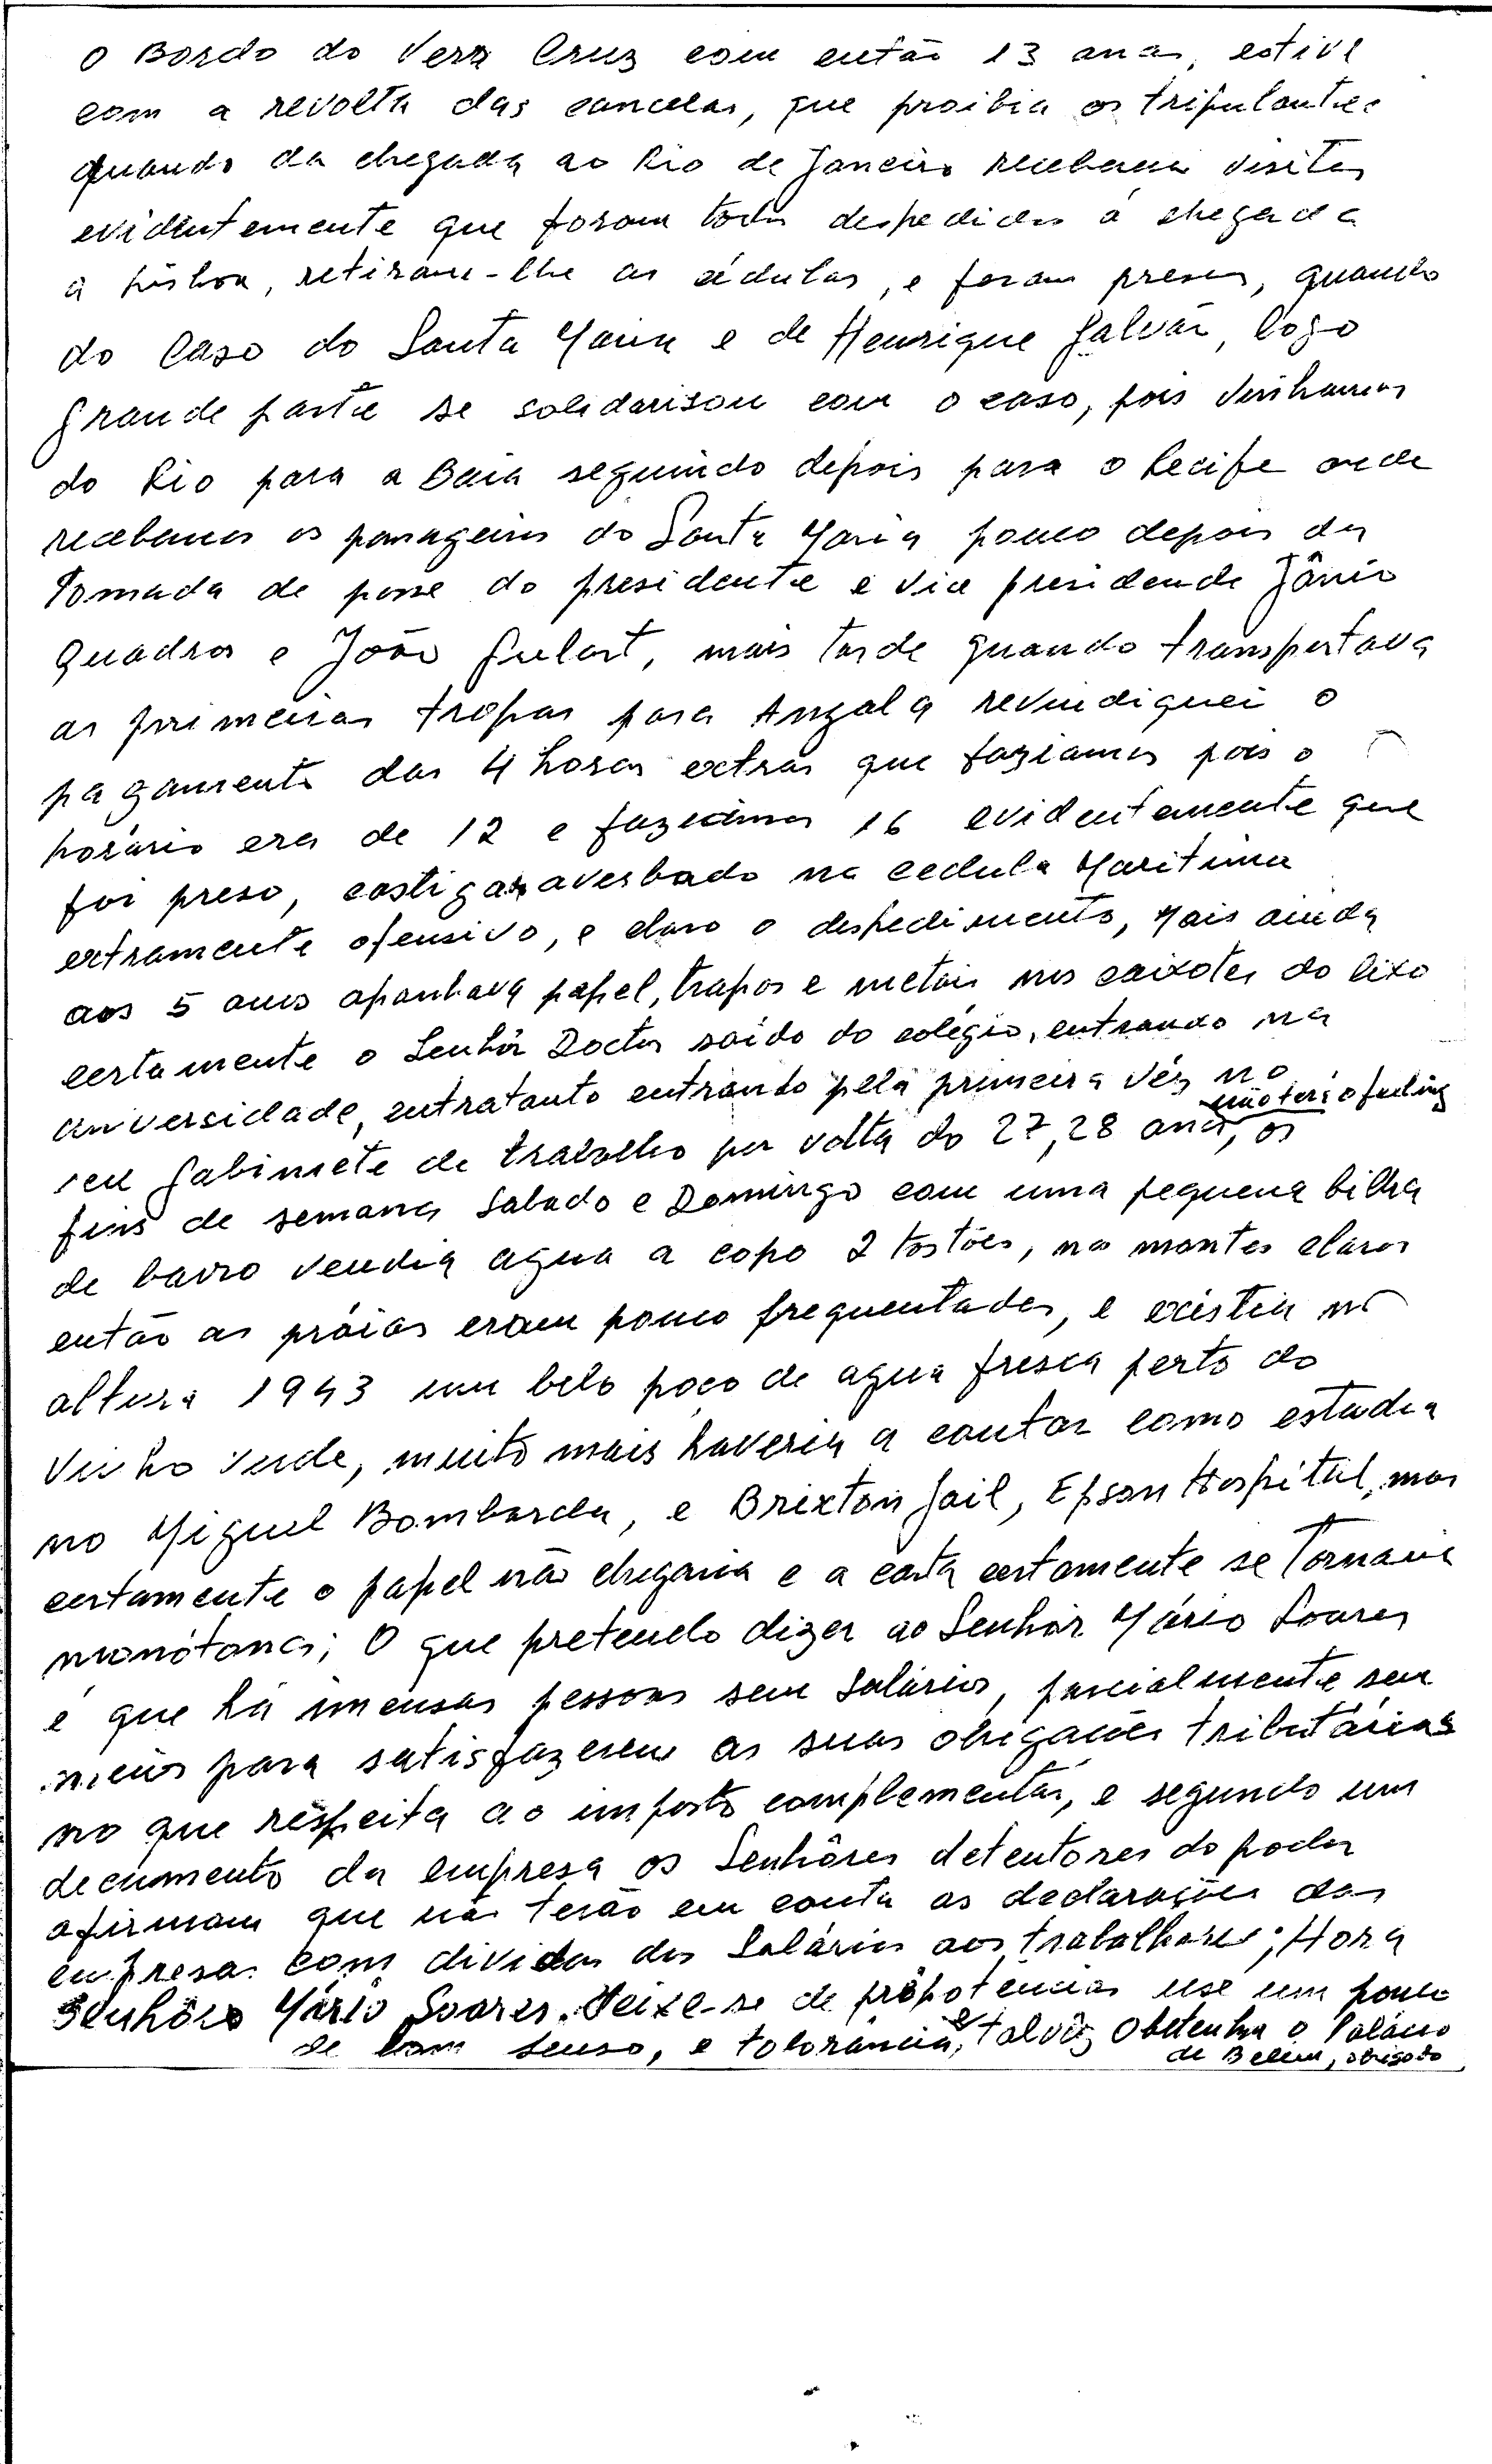 O Bordo do Vera Cruz com então 13 anos, estive
com a revolta das cancelas, que proibia os tripulantes
quando da chegada ao Rio de Janeiro receberem visitas
evidentemente que foram todos despedidos á chegada
a Lisboa, retiram-lhe as cédulas, e foram presos, quando
do Caso do Santa Maria e de Henrique Galvão, logo
grande parte se solidarisou com o caso, pois vinhamos
do Rio para a Baia seguindo depois para o Recife onde
recebemos os passageiros do Santa Maria pouco depois da
Tomada de posse do presidente e vice presidende Jânio
Quadros e João Gulart, mais tarde quando transportava
as primeiras tropas para Angola revindiquei o
pagamento das 4 horas extras que faziamos pois o
horário era de 12 e faziamos 16 evidentemente que
foi preso, castigo averbado na cedula Maritima
extramente ofensivo, e claro o despedimento, Mais ainda
aos 5 anos apanhava papel, trapos e metais nos caixotes do lixo
certamente o Senhôr Doctor saído do colégio, entrando na
universidade, entratanto entrando pela primeira vês no
seu Gabinete de trabalho por volta do 27,28 anos, não terá o feeling os
fins de semana Sabado e Domingo com uma pequena bilha
de barro vendia agua a copo 2 tostões, nos montes claros
então as práias eram pouco frequentadas, e existia na
altura 1943 um belo poço de agua fresca perto do
Vinho Verde, muito mais haveria a contar como estadia
no Miguel Bombarda, e Brixton Jail, Epson Hospital, mas
certamente o papel não chegaria e a carta certamente se Tornaria
monótona; O que pretendo dizer ao Senhôr Mário Soares
é que há imensas pessoas sem Salários, parcialmente sem
meios para satisfazerem as suas obrigações tributárias
no que respeita ao imposto complementar, e segundo um
documento da empresa os Senhôres detentores do poder
afirmam que não terão em conta as declarações das
empresas com dividas dos Salários aos trabalhores; Hora
Senhôre Mário Soares. Deixe-se de prêpotências use um pouco
de bom senso, e tolorância, e talvês Obtenha o Palácio
de Belem, obrigado